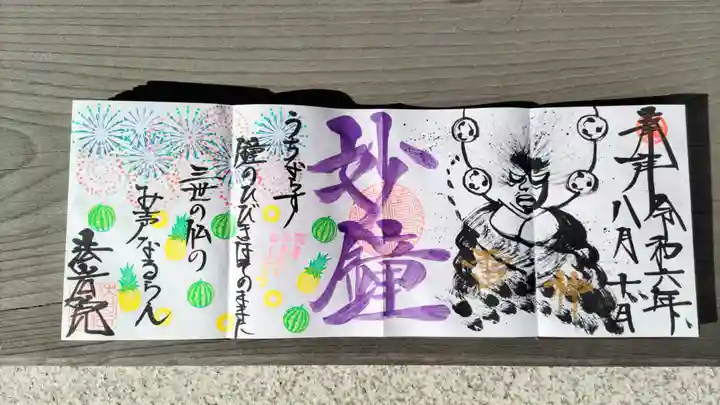 奉拝 令和六年
八月 六日
雷神
妙鐘
うちならす
鐘のひびきはそのままに
三世の仏の
み声なるらん